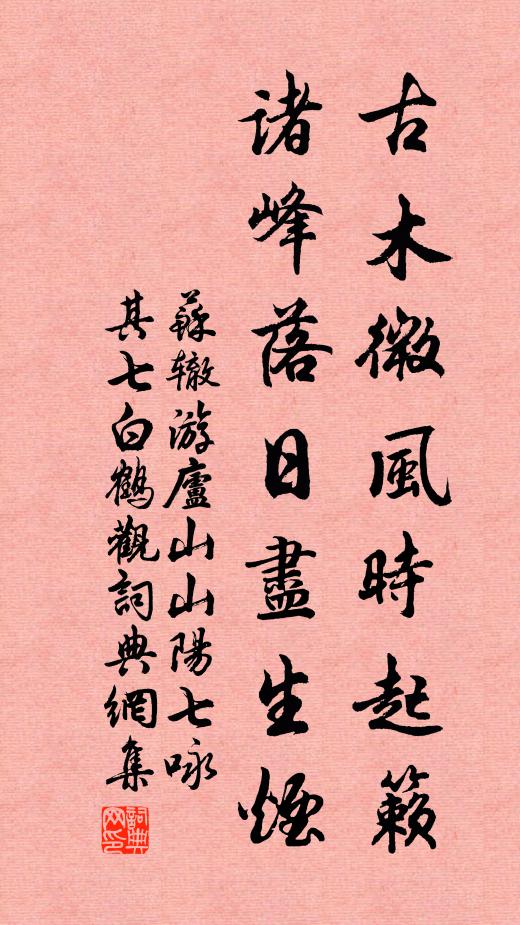 古木微風時起籟
諸峰落日盡生煙
蘇轍游廬山山陽七咏
其七白鶴觀詞典網集
詞典网印